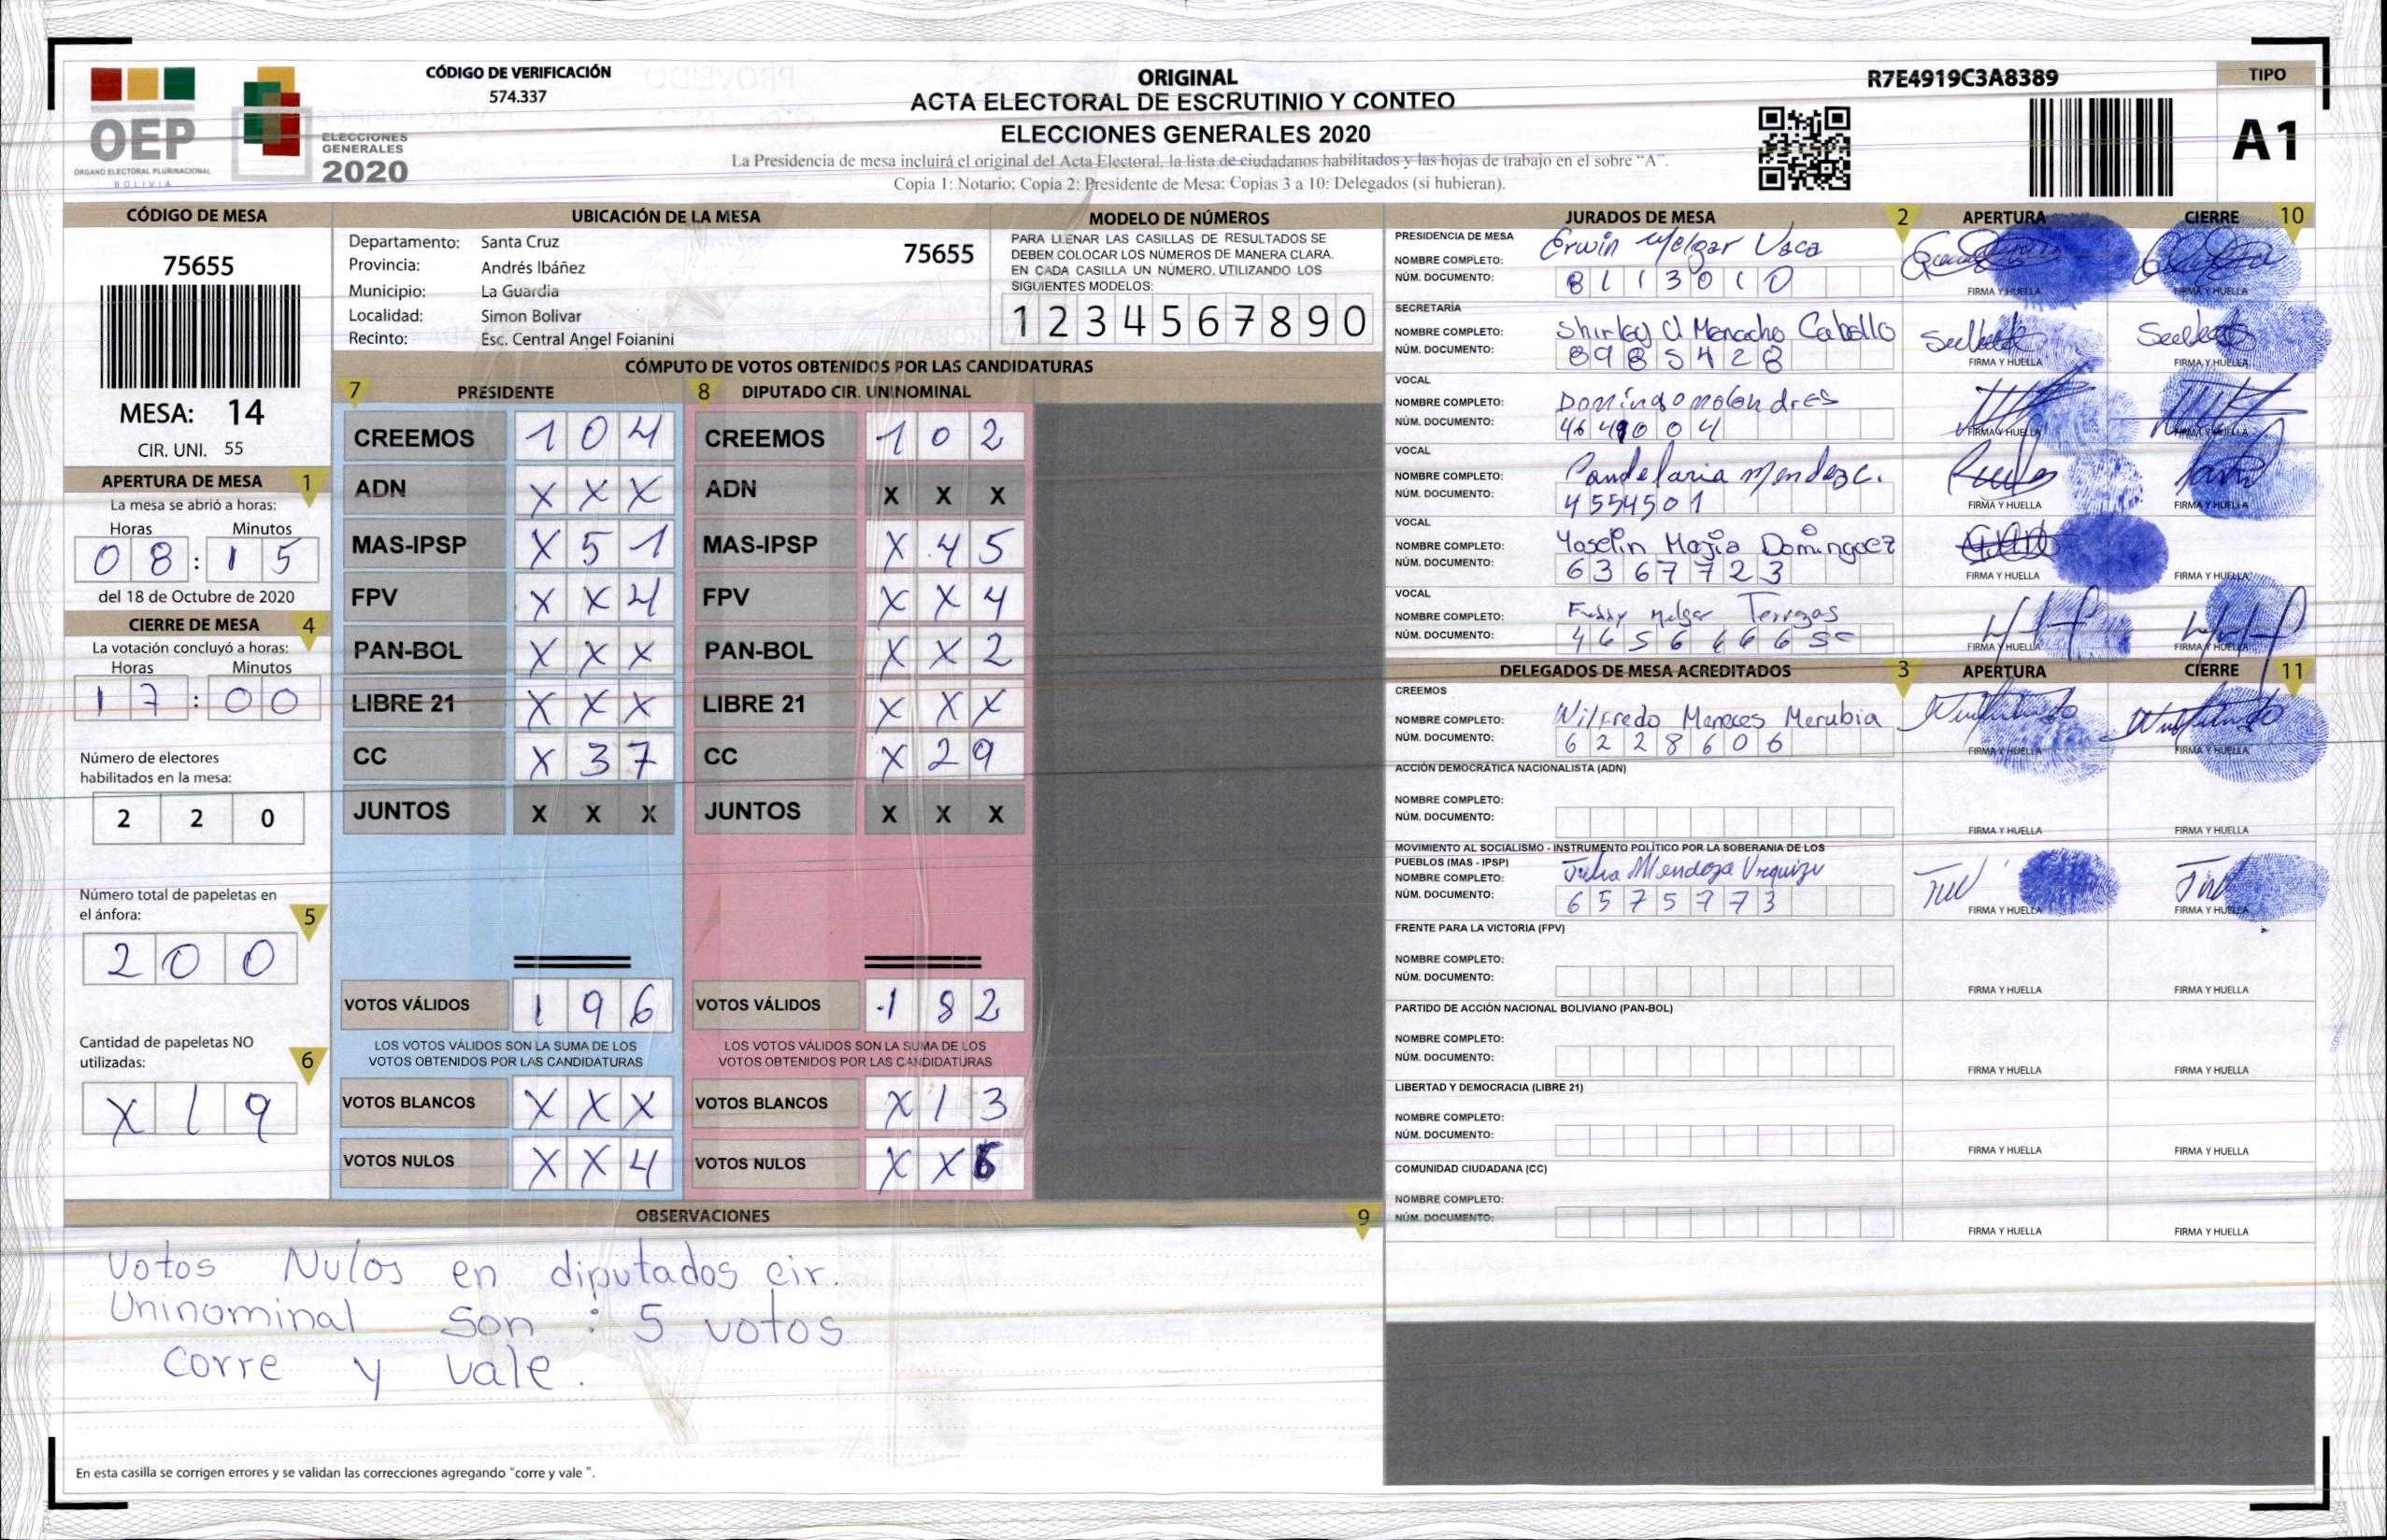 OEP
ÓRGANO ELECTORAL PLURINACIONAL
BOLIVIA
ELECCIONES
GENERALES
2020
CÓDIGO DE VERIFICACIÓN
574.337
ORIGINAL
ACTA ELECTORAL DE ESCRUTINIO Y CONTEO
ELECCIONES GENERALES 2020
La Presidencia de mesa incluirá el original del Acta Electoral, la lista de ciudadanos habilitados y las hojas de trabajo en el sobre “A”.
Copia 1: Notario; Copia 2: Presidente de Mesa; Copias 3 a 10: Delegados (si hubieran).
R7E4919C3A8389
TIPO
A1
CÓDIGO DE MESA
75655
MESA: 14
CIR. UNI. 55
APERTURA DE MESA 1
La mesa se abrió a horas:
Horas Minutos
08:15
del 18 de Octubre de 2020
CIERRE DE MESA 4
La votación concluyó a horas:
Horas Minutos
17:00
Número de electores
habilitados en la mesa:
2 2 0
Número total de papeletas en
el ánfora: 5
2 0 0
Cantidad de papeletas NO
utilizadas: 6
X 1 9
UBICACIÓN DE LA MESA
Departamento: Santa Cruz 75655
Provincia: Andrés Ibáñez
Municipio: La Guardia
Localidad: Simon Bolivar
Recinto: Esc. Central Angel Foianini
MODELO DE NÚMEROS
PARA LLENAR LAS CASILLAS DE RESULTADOS SE
DEBEN COLOCAR LOS NÚMEROS DE MANERA CLARA.
EN CADA CASILLA UN NÚMERO, UTILIZANDO LOS
SIGUIENTES MODELOS:
1 2 3 4 5 6 7 8 9 0
CÓMPUTO DE VOTOS OBTENIDOS POR LAS CANDIDATURAS
7 PRESIDENTE 8 DIPUTADO CIR. UNINOMINAL
CREEMOS 1 0 4 CREEMOS 1 0 2
ADN X X X ADN X X X
MAS-IPSP X 5 1 MAS-IPSP X 4 5
FPV X X 4 FPV X X 4
PAN-BOL X X X PAN-BOL X X 2
LIBRE 21 X X X LIBRE 21 X X X
CC X 3 7 CC X 2 9
JUNTOS X X X JUNTOS X X X
VOTOS VÁLIDOS 1 9 6 VOTOS VÁLIDOS 1 8 2
LOS VOTOS VÁLIDOS SON LA SUMA DE LOS LOS VOTOS VÁLIDOS SON LA SUMA DE LOS
VOTOS OBTENIDOS POR LAS CANDIDATURAS VOTOS OBTENIDOS POR LAS CANDIDATURAS
VOTOS BLANCOS X X X VOTOS BLANCOS X 1 3
VOTOS NULOS X X 4 VOTOS NULOS X X 5
OBSERVACIONES 9
Votos Nulos en diputados cir.
Uninominal son : 5 votos
Corre y vale.
En esta casilla se corrigen errores y se validan las correcciones agregando "corre y vale ".
JURADOS DE MESA 2 APERTURA CIERRE 10
PRESIDENCIA DE MESA
NOMBRE COMPLETO: Erwin Melgar Vaca
NÚM. DOCUMENTO: 8113010
FIRMA Y HUELLA FIRMA Y HUELLA
SECRETARÍA
NOMBRE COMPLETO: Shirley Menacho Cabello
NÚM. DOCUMENTO: 8985428
FIRMA Y HUELLA FIRMA Y HUELLA
VOCAL
NOMBRE COMPLETO:
NÚM. DOCUMENTO:
FIRMA Y HUELLA FIRMA Y HUELLA
VOCAL
NOMBRE COMPLETO: Candelaria Mendez C.
NÚM. DOCUMENTO: 4554501
FIRMA Y HUELLA FIRMA Y HUELLA
VOCAL
NOMBRE COMPLETO: Yoselin Mejia Dominguez
NÚM. DOCUMENTO: 6367723
FIRMA Y HUELLA FIRMA Y HUELLA
VOCAL
NOMBRE COMPLETO: Freddy Melgar Terrazas
NÚM. DOCUMENTO:
FIRMA Y HUELLA FIRMA Y HUELLA
DELEGADOS DE MESA ACREDITADOS 3 APERTURA CIERRE 11
CREEMOS
NOMBRE COMPLETO: Wilfredo Meneces Merubia
NÚM. DOCUMENTO: 6228606
FIRMA Y HUELLA FIRMA Y HUELLA
ACCIÓN DEMOCRÁTICA NACIONALISTA (ADN)
NOMBRE COMPLETO:
NÚM. DOCUMENTO:
FIRMA Y HUELLA FIRMA Y HUELLA
MOVIMIENTO AL SOCIALISMO - INSTRUMENTO POLÍTICO POR LA SOBERANIA DE LOS
PUEBLOS (MAS - IPSP)
NOMBRE COMPLETO: Julia Mendoza Urquizu
NÚM. DOCUMENTO: 6575773
FIRMA Y HUELLA FIRMA Y HUELLA
FRENTE PARA LA VICTORIA (FPV)
NOMBRE COMPLETO:
NÚM. DOCUMENTO:
FIRMA Y HUELLA FIRMA Y HUELLA
PARTIDO DE ACCIÓN NACIONAL BOLIVIANO (PAN-BOL)
NOMBRE COMPLETO:
NÚM. DOCUMENTO:
FIRMA Y HUELLA FIRMA Y HUELLA
LIBERTAD Y DEMOCRACIA (LIBRE 21)
NOMBRE COMPLETO:
NÚM. DOCUMENTO:
FIRMA Y HUELLA FIRMA Y HUELLA
COMUNIDAD CIUDADANA (CC)
NOMBRE COMPLETO:
NÚM. DOCUMENTO:
FIRMA Y HUELLA FIRMA Y HUELLA